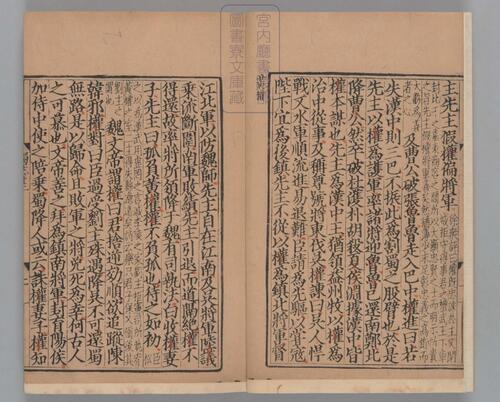 主先主假權偏將軍
及曹公破張魯魯走入巴中權進曰若
失漢中則三巴不振此為割蜀之股臂也於是
先主以權為護軍率諸將迎魯魯已還南鄭北
降曹公然卒破杜濩朴胡殺夏侯淵據漢中皆
權本謀也先主為漢中王猶領益州牧以權為
治中從事及稱尊號將東伐吳權諫曰吳人悍
戰又水軍順流進易退難臣請為先驅以甞寇
陛下宜為後鎮先主不從以權為鎮北將軍督
江北軍以防魏師先主自在江南及吳將軍陸議
乘流斷圍南軍敗績先主引退而道隔絕權不
得還故率將所領降于魏有司執法白收權妻
子先主曰孤負黃權權不負孤也待之如初 臣松
魏文帝謂權曰君捨逆効順欲追蹤陳
韓邪權對曰臣過受劉主殊遇降吳不可還蜀
無路是以歸命且敗軍之將免死為幸何古人
之可慕也文帝善之拜為鎮南將軍封育陽侯
加侍中使之陪乘蜀降人或云誅權妻子權知
宮內廳書
圖書寮文庫藏